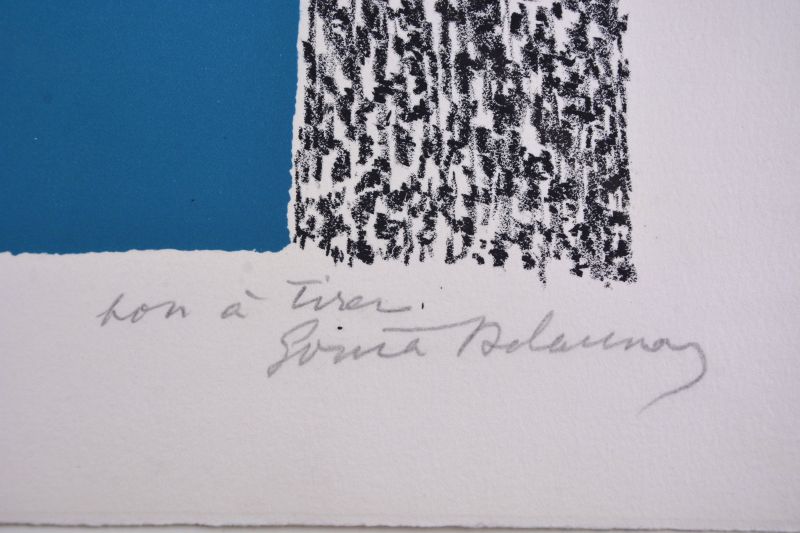 bon à tirer.
Sonia Delaunay